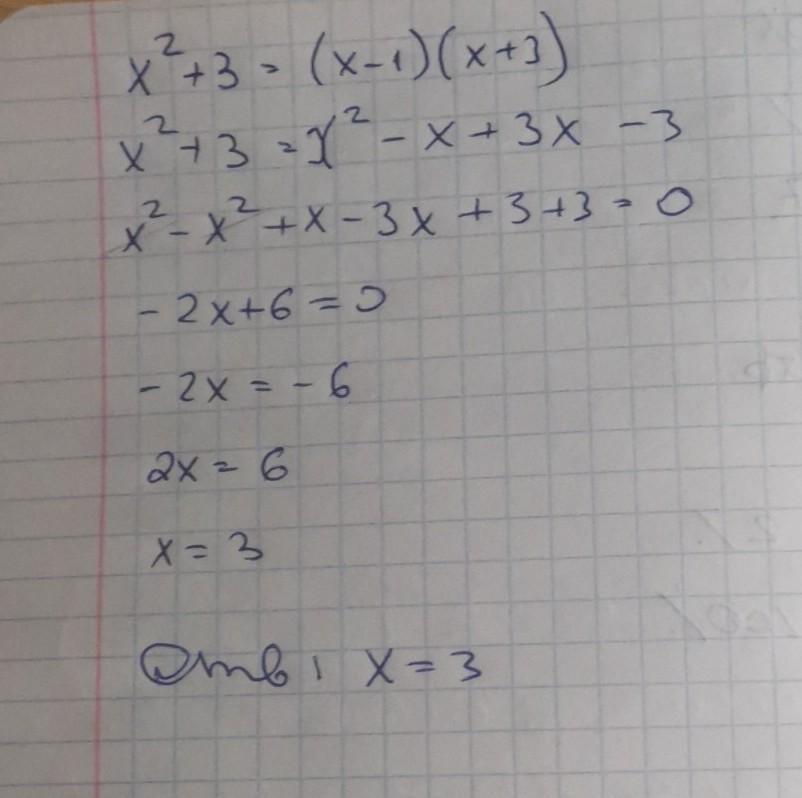 x²+3=(x-1)(x+3)
x²+3=x²-x+3x-3
x²-x²+x-3x+3+3=0
-2x+6=0
-2x=-6
2x=6
x=3
Отв: x=3